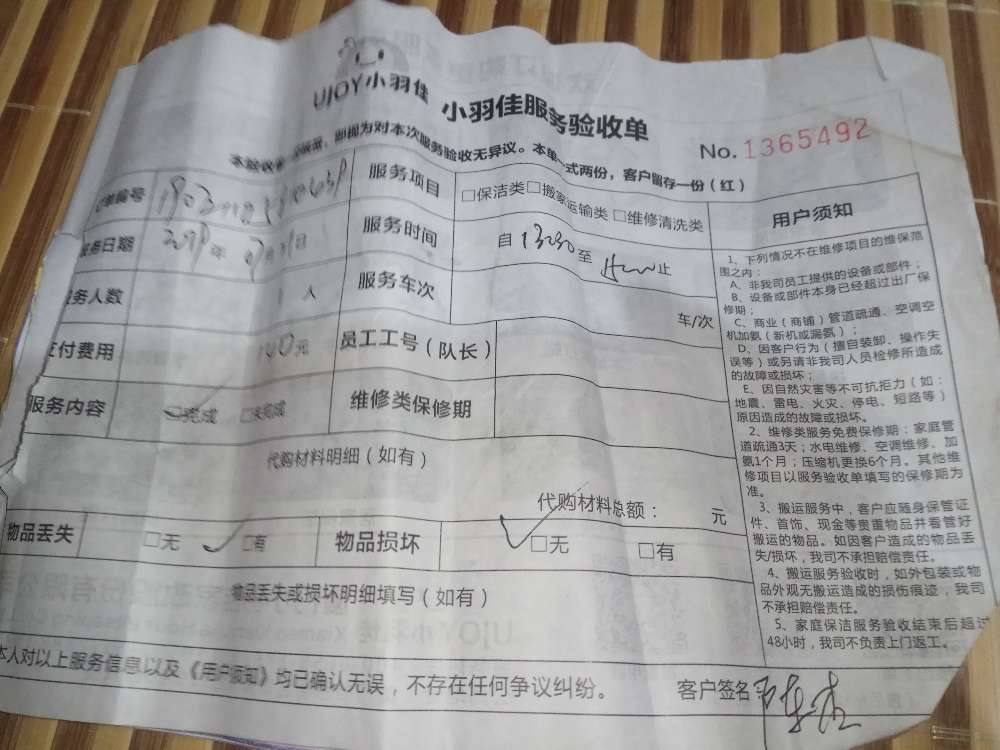 UJOY小羽佳
小羽佳服务验收单
No.1365492
本验收单 即视为对本次服务验收无异议。本单一式两份，客户留存一份（红）
订单编号
服务项目 □保洁类□搬家运输类□维修清洗类
服务日期 年 月 日
服务时间 自 至 止
服务人数 人
服务车次 车/次
支付费用 元
员工工号（队长）
服务内容 □完成 □未完成
维修类保修期
代购材料明细（如有）
代购材料总额： 元
物品丢失 □无 □有
物品损坏 □无 □有
物品丢失或损坏明细填写（如有）
本人对以上服务信息以及《用户须知》均已确认无误，不存在任何争议纠纷。
客户签名
用户须知
1、下列情况不在维修项目的维保范
围之内：
A、非我司员工提供的设备或部件；
B、设备或部件本身已经超过出厂保
修期；
C、商业（商铺）管道疏通、空调空
机加氨（新机或漏氨）；
D、因客户行为（擅自装卸、操作失
误等）或另请非我司人员检修所造成
的故障或损坏；
E、因自然灾害等不可抗拒力（如：
地震、雷电、火灾、停电、短路等）
原因造成的故障或损坏。
2、维修类服务免费保修期：家庭管
道疏通3天；水电维修、空调维修、加
氨1个月；压缩机更换6个月。其他维
修项目以服务验收单填写的保修期为
准。
3、搬运服务中，客户应随身保管证
件、首饰、现金等贵重物品并看管好
搬运的物品。如因客户造成的物品丢
失/损坏，我司不承担赔偿责任。
4、搬运服务验收时，如外包装或物
品外观无搬运造成的损伤痕迹，我司
不承担赔偿责任。
5、家庭保洁服务验收结束后超过
48小时，我司不负责上门返工。